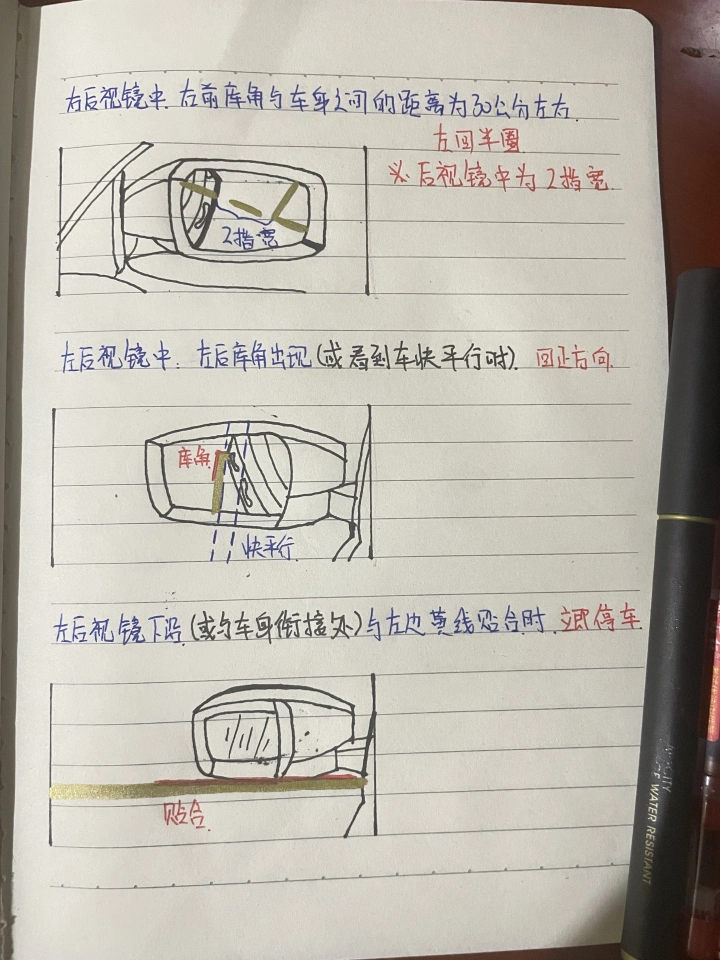 右后视镜中.右前库角与车身之间的距离为30公分左右.
左回半圈
※后视镜中为2指宽
2指宽
左后视镜中:左后库角出现(或看到车快平行时).回正方向.
库角
快平行.
左后视镜下沿(或与车身衔接处)与左边黄线贴合时.立即停车.
贴合.
WATER RESISTANT